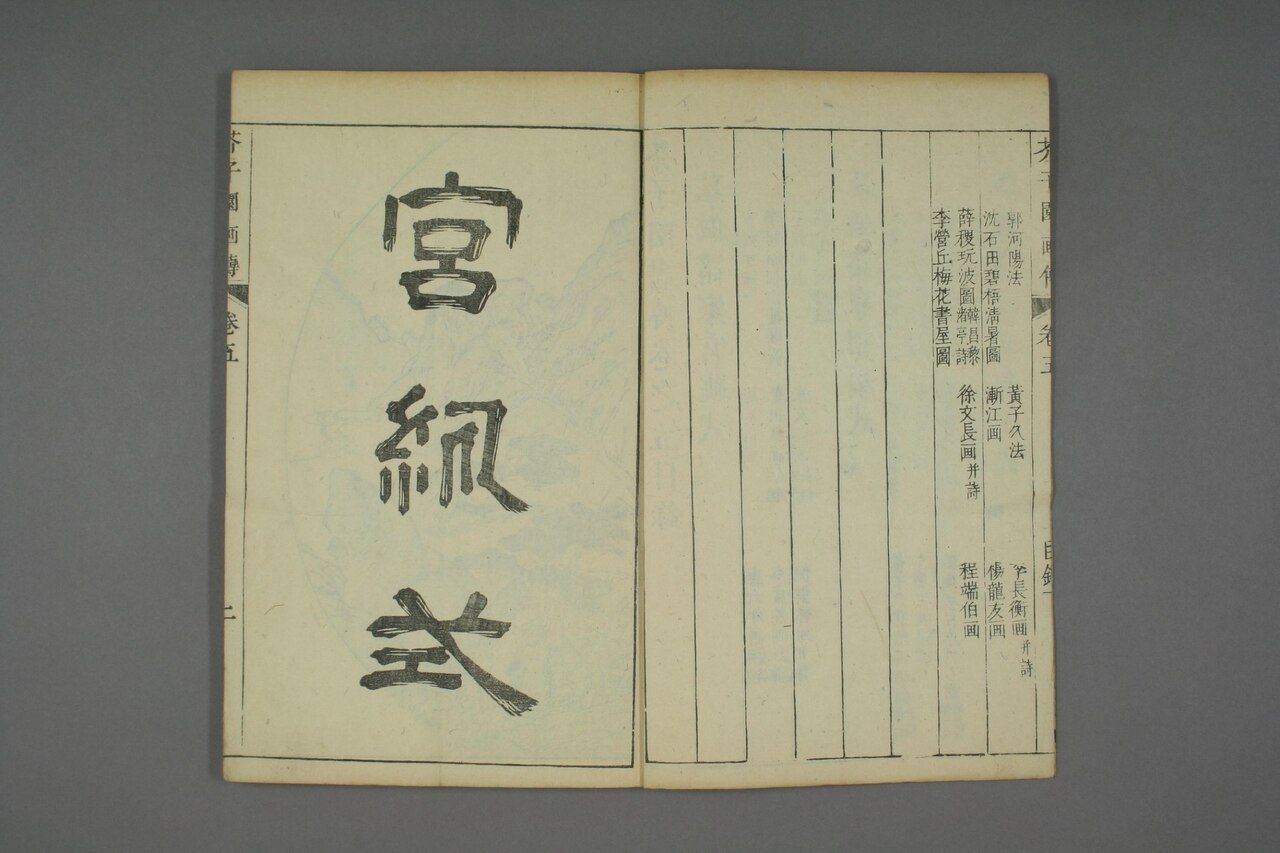 芥子園画傳 卷五 目錄
郭河陽法 黃子久法 李長衡画并詩
沈石田碧梧清暑圖 漸江画 楊龍友画
薛稷玩波圖 韓昌黎渚亭詩 徐文長画并詩 程端伯画
李營丘梅花書屋圖
宮紈式
芥子園画傳 卷五